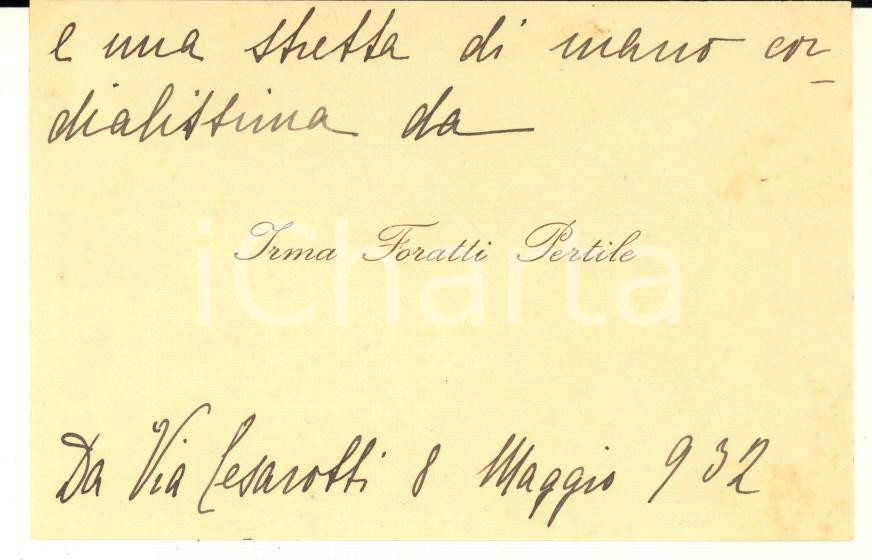 e una stretta di mano cor-
dialissima da
Irma Foratti Pertile
iCharta
Da Via Cesarotti 8 Maggio 932